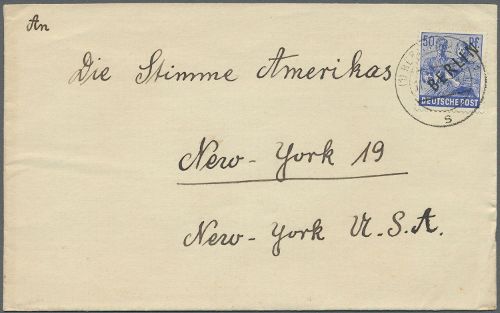 An
Die Stimme Amerikas
New-York 19
New-York U.S.A.
50 PF
BERLIN
DEUTSCHE POST
s